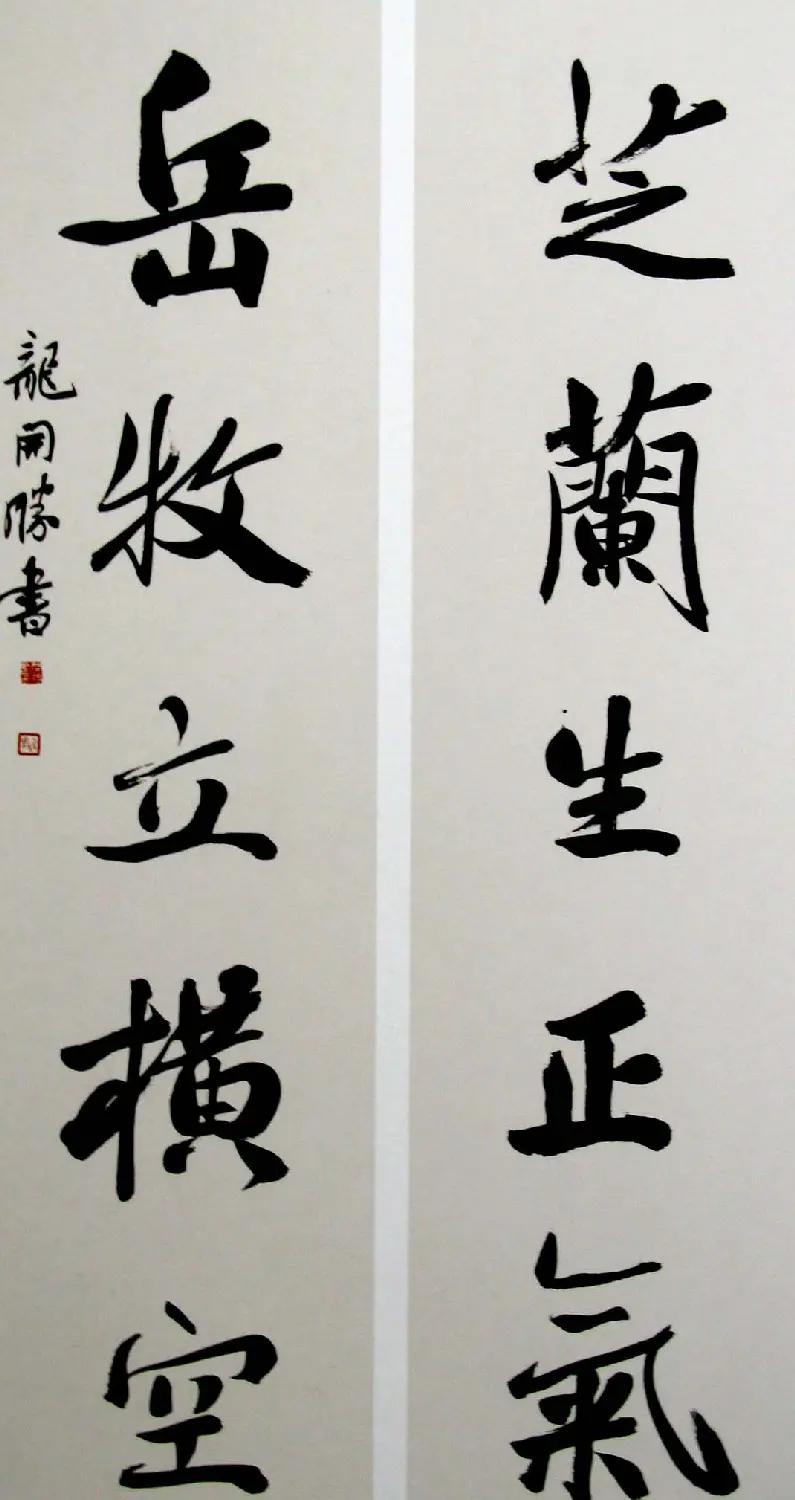 芝蘭生正氣
岳牧立橫空
龍開勝書